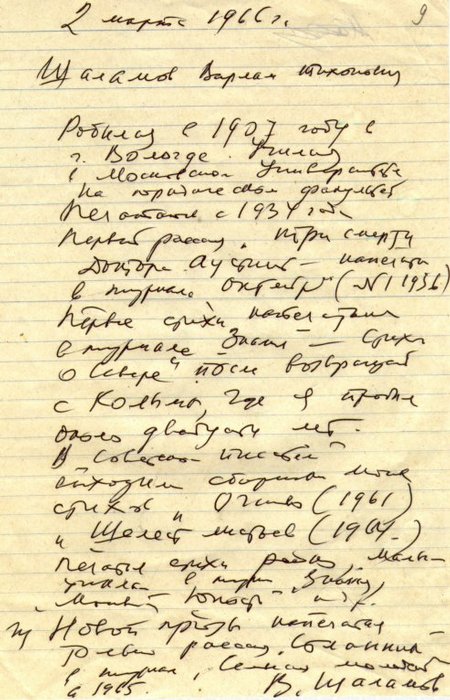 2 марта 1966 г.
9
Шаламов Варлам Тихонович
Родился в 1907 году в
г. Вологде. Учился
в Московском Университете
на юридическом факультете
Печататься с 1934 года
Первый рассказ „Три смерти
Доктора Аустино" – напечатан
в журнале „Октябрь" (№ 1 1936)
Первые стихи напечатаны
в журнале „Знамя" – „Стихи
о Севере" после возвращения
с Колымы, где я пробыл
около двадцати лет.
В „Советском писателе"
выходили сборники моих
стихов „Огниво" (1961)
и „Шелест листьев" (1964.)
Печатал стихи
в журн. Знамя,
„Москва" „Юность" и др.
Из Новой прозы напечатан
только рассказ „Стланик"
в журнале „Сельская молодежь"
в 1965.
В. Шаламов